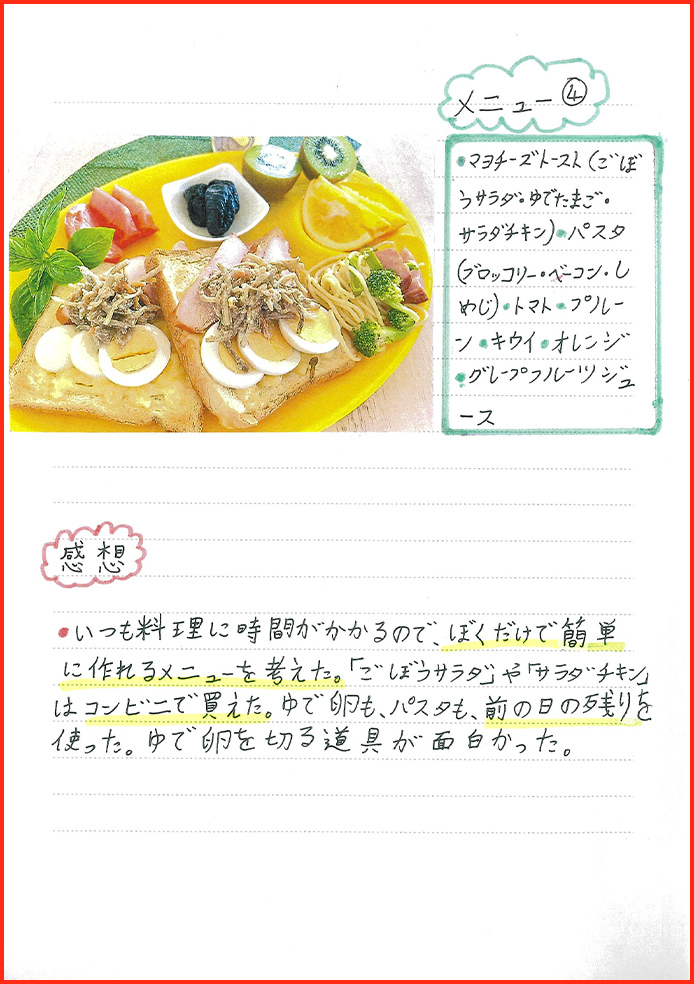 メニュー④
・マヨチーズトースト(ごぼ
うサラダ・ゆでたまご・
サラダチキン)・パスタ
(ブロッコリー・ベーコン・し
めじ)・トマト・プルー
ン・キウイ・オレンジ
・グレープフルーツジュ
ース
感想
・いつも料理に時間がかかるので、ぼくだけで簡単
に作れるメニューを考えた。「ごぼうサラダ」や「サラダチキン」
はコンビニで買えた。ゆで卵も、パスタも、前の日の残りを
使った。ゆで卵を切る道具が面白かった。